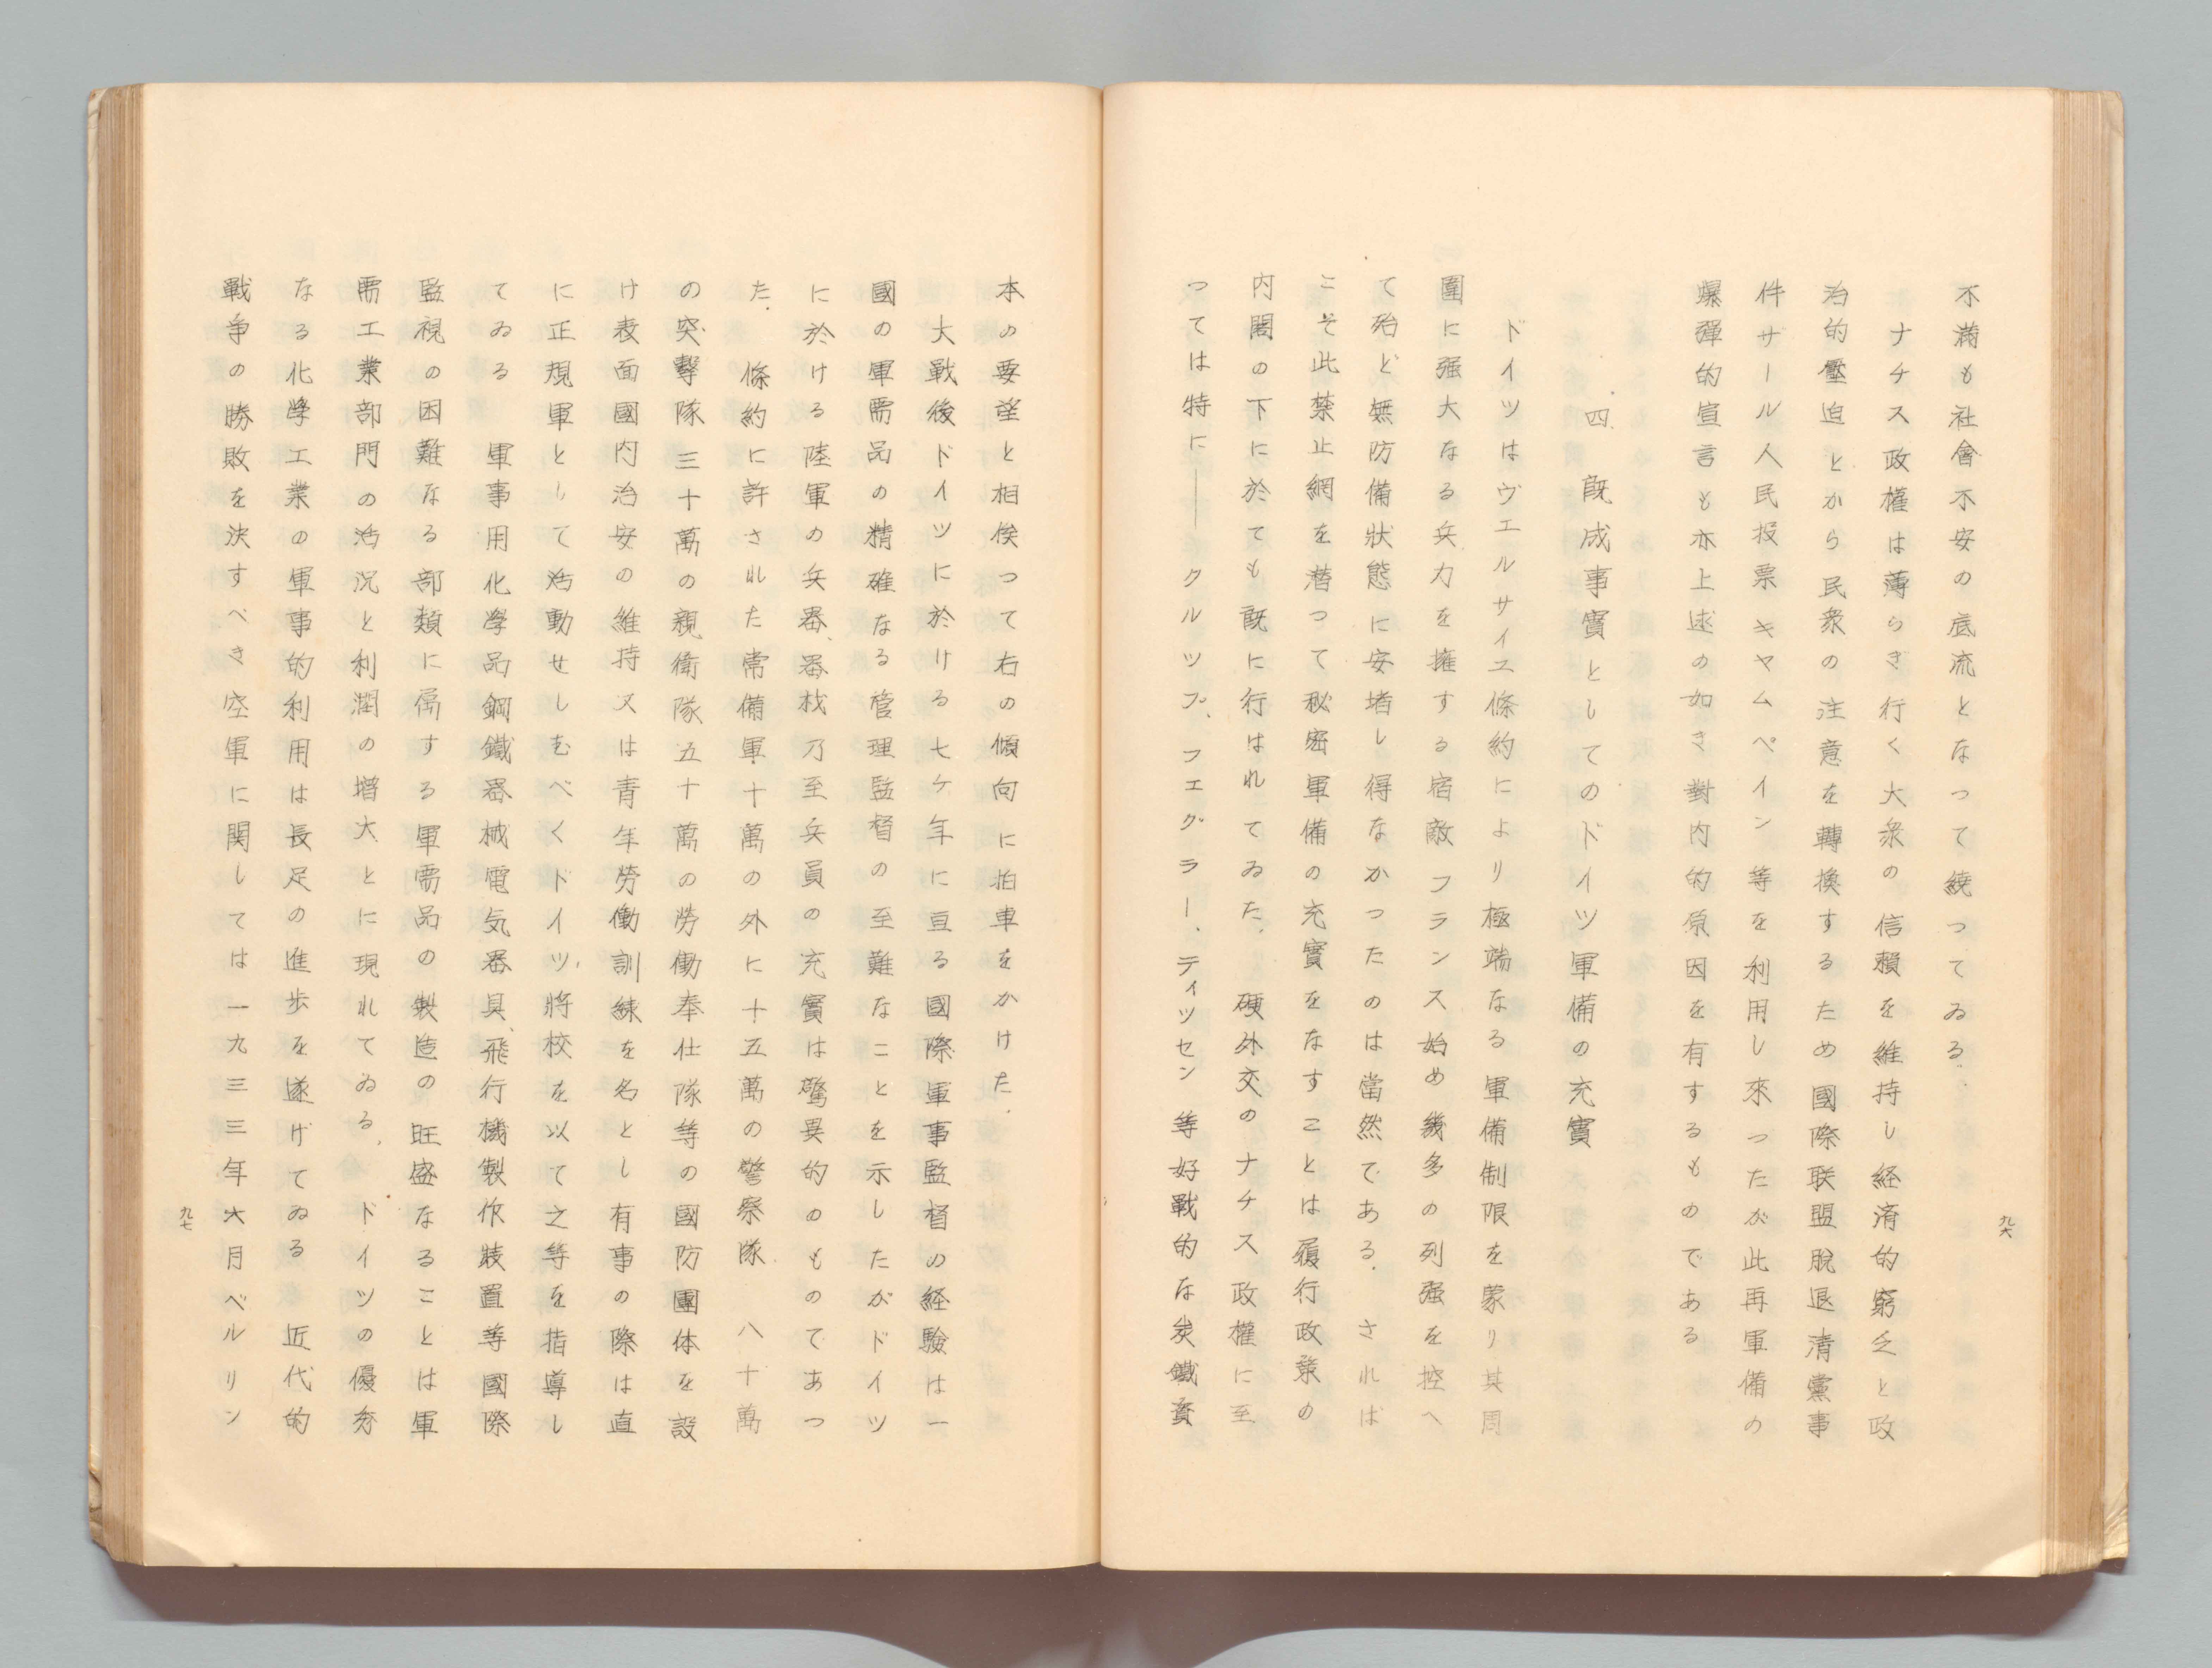 不滿も社會不安の底流となつて繞つてゐる．
ナチス政權は薄らぎ行く大衆の信賴を維持し経済的窮乏と政
治的壓迫とから民衆の注意を轉換するため國際联盟脫退清黨事
件ザール人民投票キヤムペイン等を利用し來つたが此再軍備の
爆彈的宣言も亦上述の如き對内的原因を有するものである
四．旣成事實としてのドイツ軍備の充實
ドイツはヴエルサイユ條約により極端なる軍備制限を蒙り其周
圍に强大なる兵力を擁する宿敵フランス始め幾多の列强を控へ
て殆ど無防備狀態に安堵し得なかつたのは當然である．されば
こそ此禁止網を潜つて秘密軍備の充實をなすことは履行政策の
内閣の下に於ても旣に行はれてゐた．硬外交のナチス政權に至
つては特に――クルツプ、フエグラー、ティツセン等好戰的な炭鐵資
九六
本の要望と相俟つて右の傾向に拍車をかけた．
大戰後ドイツに於ける七ケ年に亘る國際軍事監督の経驗は一
國の軍需品の精確なる管理監督の至難なことを示したがドイツ
に於ける陸軍の兵器、器材乃至兵員の充實は驚異的のものてあつ
た．條約に許された常備軍十萬の外に十五萬の警察隊八十萬
の突擊隊三十萬の親衛隊五十萬の勞働奉仕隊等の國防團体を設
け表面國内治安の維持又は青年勞働訓練を名とし有事の際は直
に正規軍として活動せしむべくドイツ將校を以て之等を指導し
てゐる　軍事用化學品鋼鐵器械電気器具、飛行機製作裝置等國際
監視の困難なる部類に屬する軍需品の製造の旺盛なることは軍
需工業部門の活況と利潤の增大とに現れてゐる．ドイツの優秀
なる化學工業の軍事的利用は長足の進歩を遂げてゐる　近代的
戰争の勝敗を決すべき空軍に関しては一九三三年六月ベルリン
九七